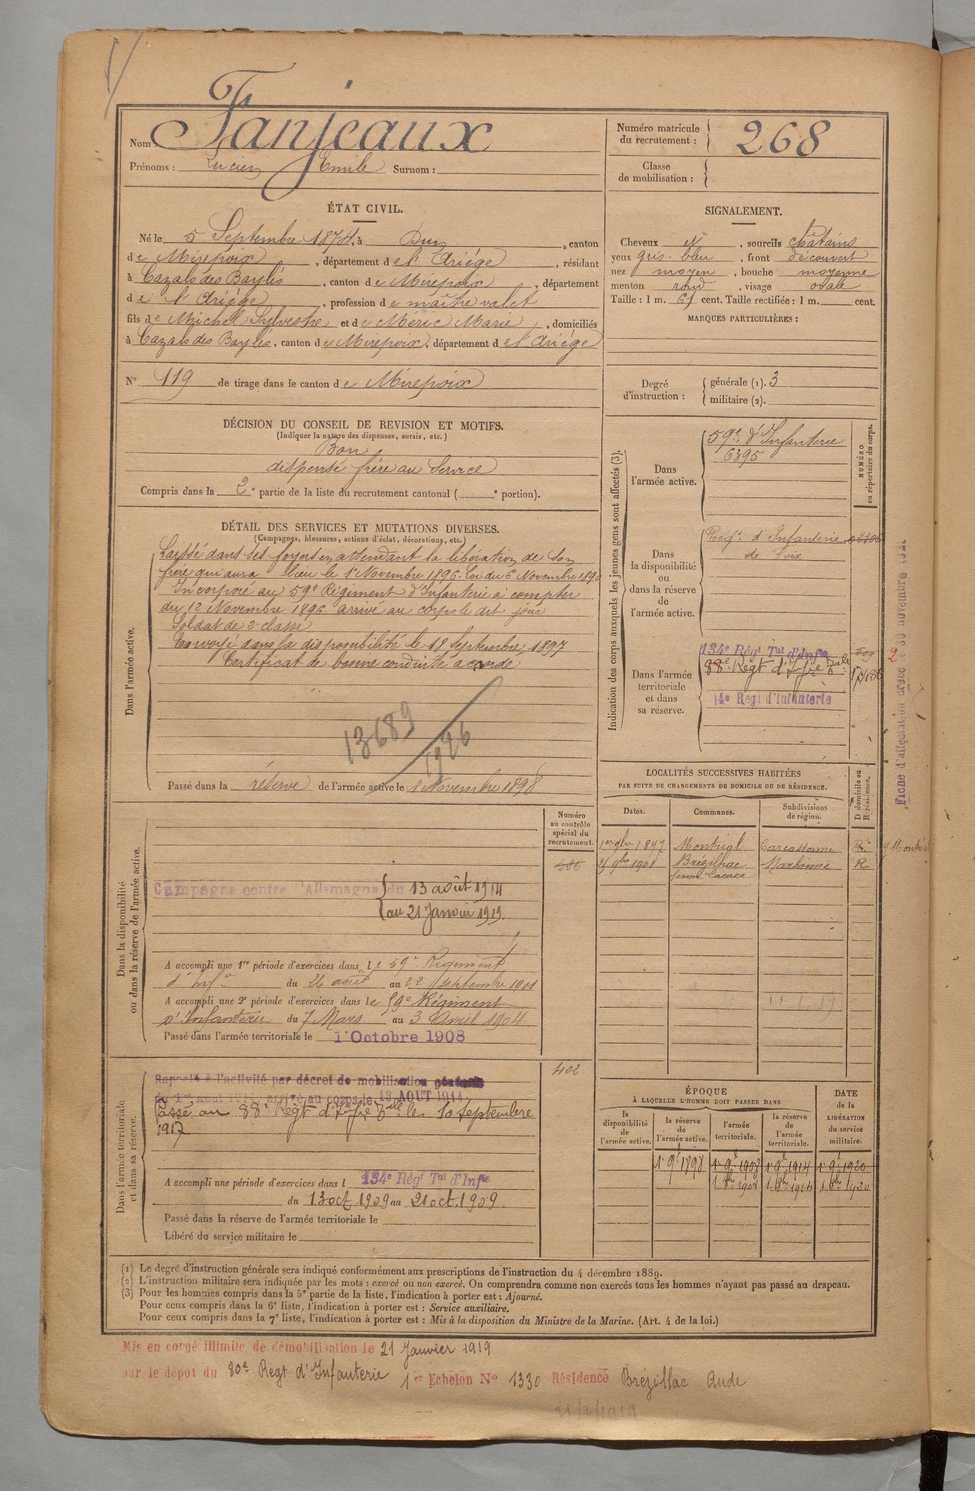 Nom Fanjeaux
Prénoms : Lucien Emile Surnom :
Numéro matricule du recrutement : 268
Classe de mobilisation :
ÉTAT CIVIL.
Né le 5 Septembre 1874, à Dun, canton
de Mirepoix, département de l'Ariége, résidant
à Cazals des Baylès, canton de Mirepoix, département
de l'Ariége, profession de maître valet
fils de Michel Sylvestre et de Méric Marie, domiciliés
à Cazals des Baylès, canton de Mirepoix, département de l'Ariége
N° 119 de tirage dans le canton de Mirepoix
SIGNALEMENT.
Cheveux et, sourcils châtains
yeux gris-bleu, front découvert
nez moyen, bouche moyenne
menton rond, visage ovale
Taille : 1 m. 67 cent. Taille rectifiée : 1 m. cent.
MARQUES PARTICULIÈRES :
Degré d'instruction : générale (1). 3
militaire (2).
DÉCISION DU CONSEIL DE REVISION ET MOTIFS.
(Indiquer la nature des dispenses, sursis, etc.)
Bon
dispensé frère au Service
Compris dans la 2e partie de la liste du recrutement cantonal ( e portion).
DÉTAIL DES SERVICES ET MUTATIONS DIVERSES.
(Campagnes, blessures, actions d'éclat, décorations, etc.)
Dans l'armée active.
Laissé dans ses foyers en attendant la libération de son
frère qui aura lieu le 1er Novembre 1896. Loi du 6 Novembre 1890
Incorporé au 59e Régiment d'Infanterie à compter
du 12 Novembre 1896 arrivé au corps le dit jour
Soldat de 2e classe
Envoyé dans la disponibilité le 18 Septembre 1897
Certificat de bonne conduite accordé
13689
1926
Passé dans la réserve de l'armée active le 1 Novembre 1898
Indication des corps auxquels les jeunes gens sont affectés (3).
NUMÉRO au répertoire du corps.
Dans l'armée active.
59e d'Infanterie
6395
Dans la disponibilité ou dans la réserve de l'armée active.
Régt d'Infanterie
de Foix
Dans l'armée territoriale et dans sa réserve.
134e Régt Tal d'Infie
88e Regt d'Infie Tale
14e Régt d'Infanterie
LOCALITÉS SUCCESSIVES HABITÉES
PAR SUITE DE CHANGEMENTS DE DOMICILE OU DE RÉSIDENCE.
Dates. Communes. Subdivisions de région. D domicile ou R résidence.
1897 Montréal Carcassonne R
1901 Brézilhac Narbonne R
Dans la disponibilité ou dans la réserve de l'armée active.
Numéro au contrôle spécial du recrutement.
Campagne contre l'Allemagne du 13 août 1914
au 21 Janvier 1919.
A accompli une 1re période d'exercices dans le 59e Régiment
d'Infie du 26 août au 22 septembre 1901
A accompli une 2e période d'exercices dans le 59e Régiment
d'Infanterie du 7 Mars au 3 Avril 1904
Passé dans l'armée territoriale le 1 Octobre 1908
402
Dans l'armée territoriale et dans sa réserve.
Rappelé à l'activité par décret de mobilisation générale
du 1er Août 1914, arrivé au corps le 13 AOUT 1914
Passé au 88e Régt d'Infie Tale le 10 Septembre
1917
A accompli une période d'exercices dans l 134e Régt Tal d'Infie
du 13 oct. 1909 au 21 oct. 1909.
Passé dans la réserve de l'armée territoriale le
Libéré du service militaire le
ÉPOQUE
À LAQUELLE L'HOMME DOIT PASSER DANS
la disponibilité de l'armée active. la réserve de l'armée active. l'armée territoriale. la réserve de l'armée territoriale. DATE de la LIBÉRATION du service militaire.
1er 9bre 1898 1er 9bre 1908 1er 9bre 1914 1er 9bre 1920
(1) Le degré d'instruction générale sera indiqué conformément aux prescriptions de l'instruction du 4 décembre 1889.
(2) L'instruction militaire sera indiquée par les mots : exercé ou non exercé. On comprendra comme non exercés tous les hommes n'ayant pas passé au drapeau.
(3) Pour les hommes compris dans la 5e partie de la liste, l'indication à porter est : Ajourné.
Pour ceux compris dans la 6e liste, l'indication à porter est : Service auxiliaire.
Pour ceux compris dans la 7e liste, l'indication à porter est : Mis à la disposition du Ministre de la Marine. (Art. 4 de la loi.)
Mis en congé illimité de démobilisation le 21 Janvier 1919
par le dépot du 80e Regt d'Infanterie 1er Echelon N° 1330 Résidence Brézillac Aude
21/2/1919